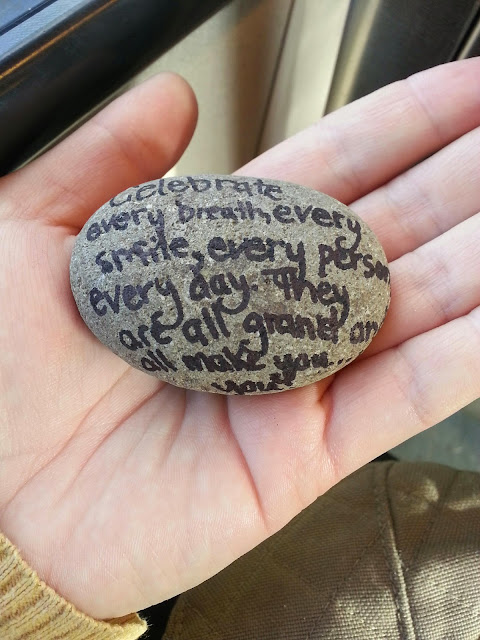 Celebrate
every breath, every
smile, every person
every day. They
are all grand an
all make you...
you!